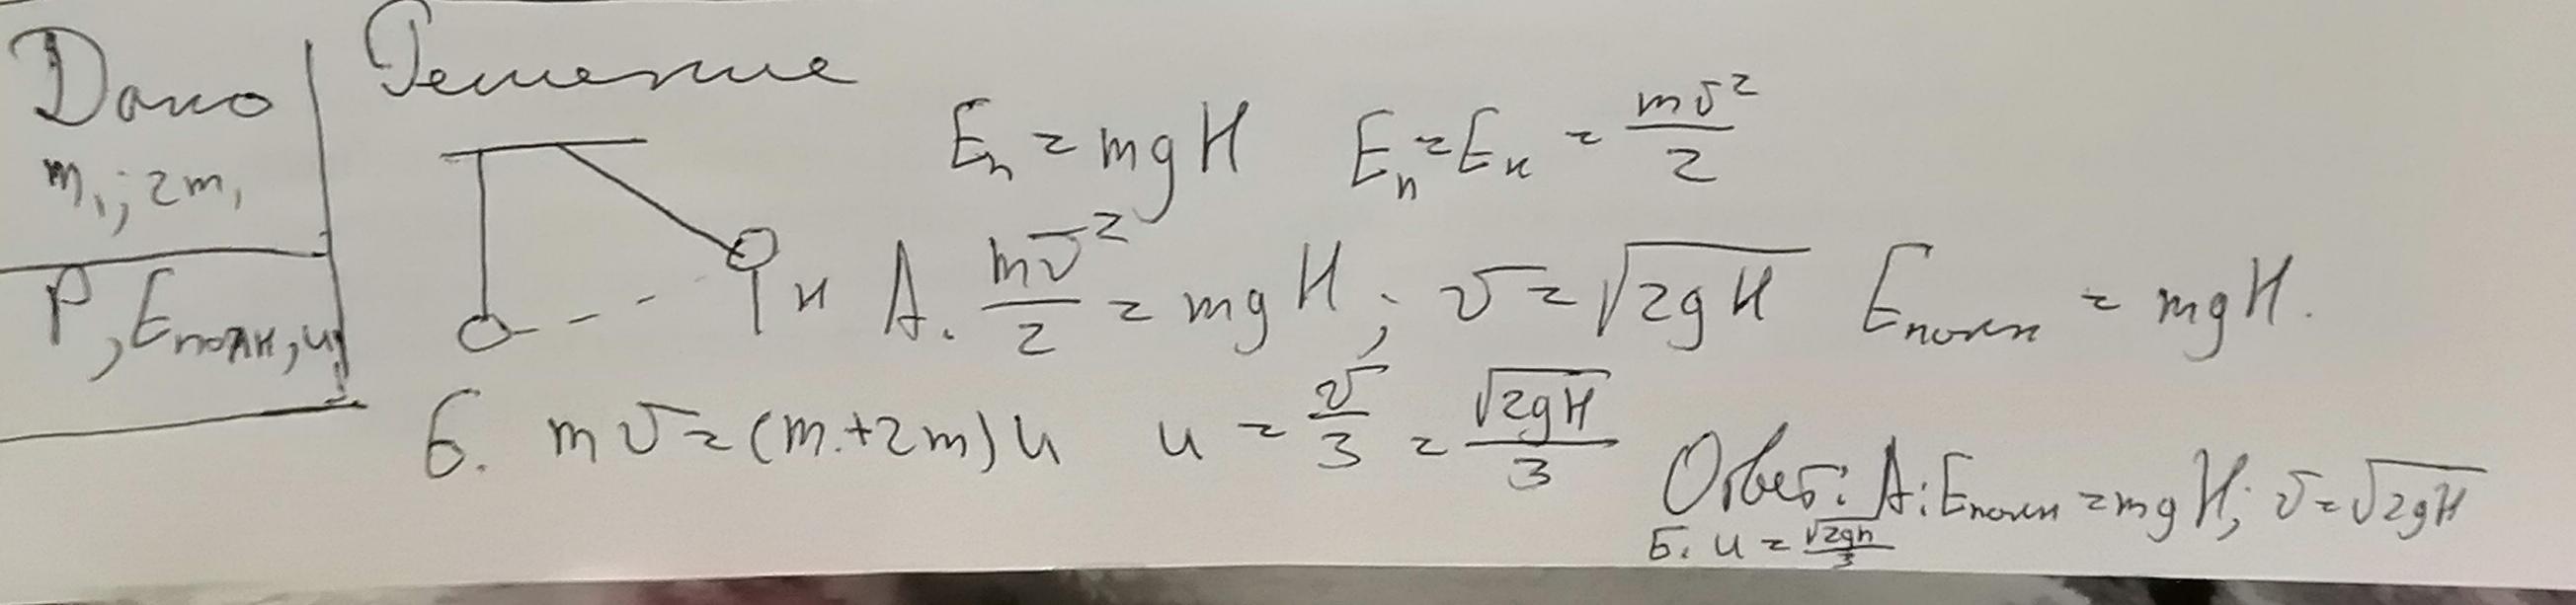 Дано
m₁; 2m₁
P, Eполн, u
Решение
Eп = mgH Eп = Eк = mv²/2
H
А. mv²/2 = mgH; v = √2gH Eполн = mgH.
Б. mv = (m+2m)u u = v/3 = √2gH/3
Ответ: А: Eполн = mgH; v = √2gH
Б. u = √2gH/3